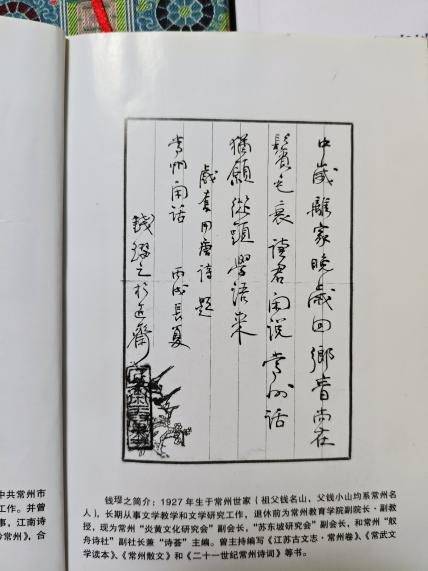 中歲離家晚歲回鄉音尚在
鬢毛衰讀君闲説常州話
猶願從頭學語來
戲套用唐詩題
常州闲話 丙戌長夏
錢璱之於近齋
中共常州市
工作。并曾
事,江南诗
常州》,合
钱璱之简介:1927 年生于常州世家(祖父钱名山,父钱小山均系常州名
人),长期从事文学教学和文学研究工作,退休前为常州教育学院副院长·副教
授,现为常州“炎黄文化研究会”副会长,“苏东坡研究会”副会长,和常州“舣
舟诗社”副社长兼“诗荟”主编。曾主持编写《江苏古文志·常州卷》、《常武文
学读本》、《常州散文》和《二十一世纪常州诗词》等书。